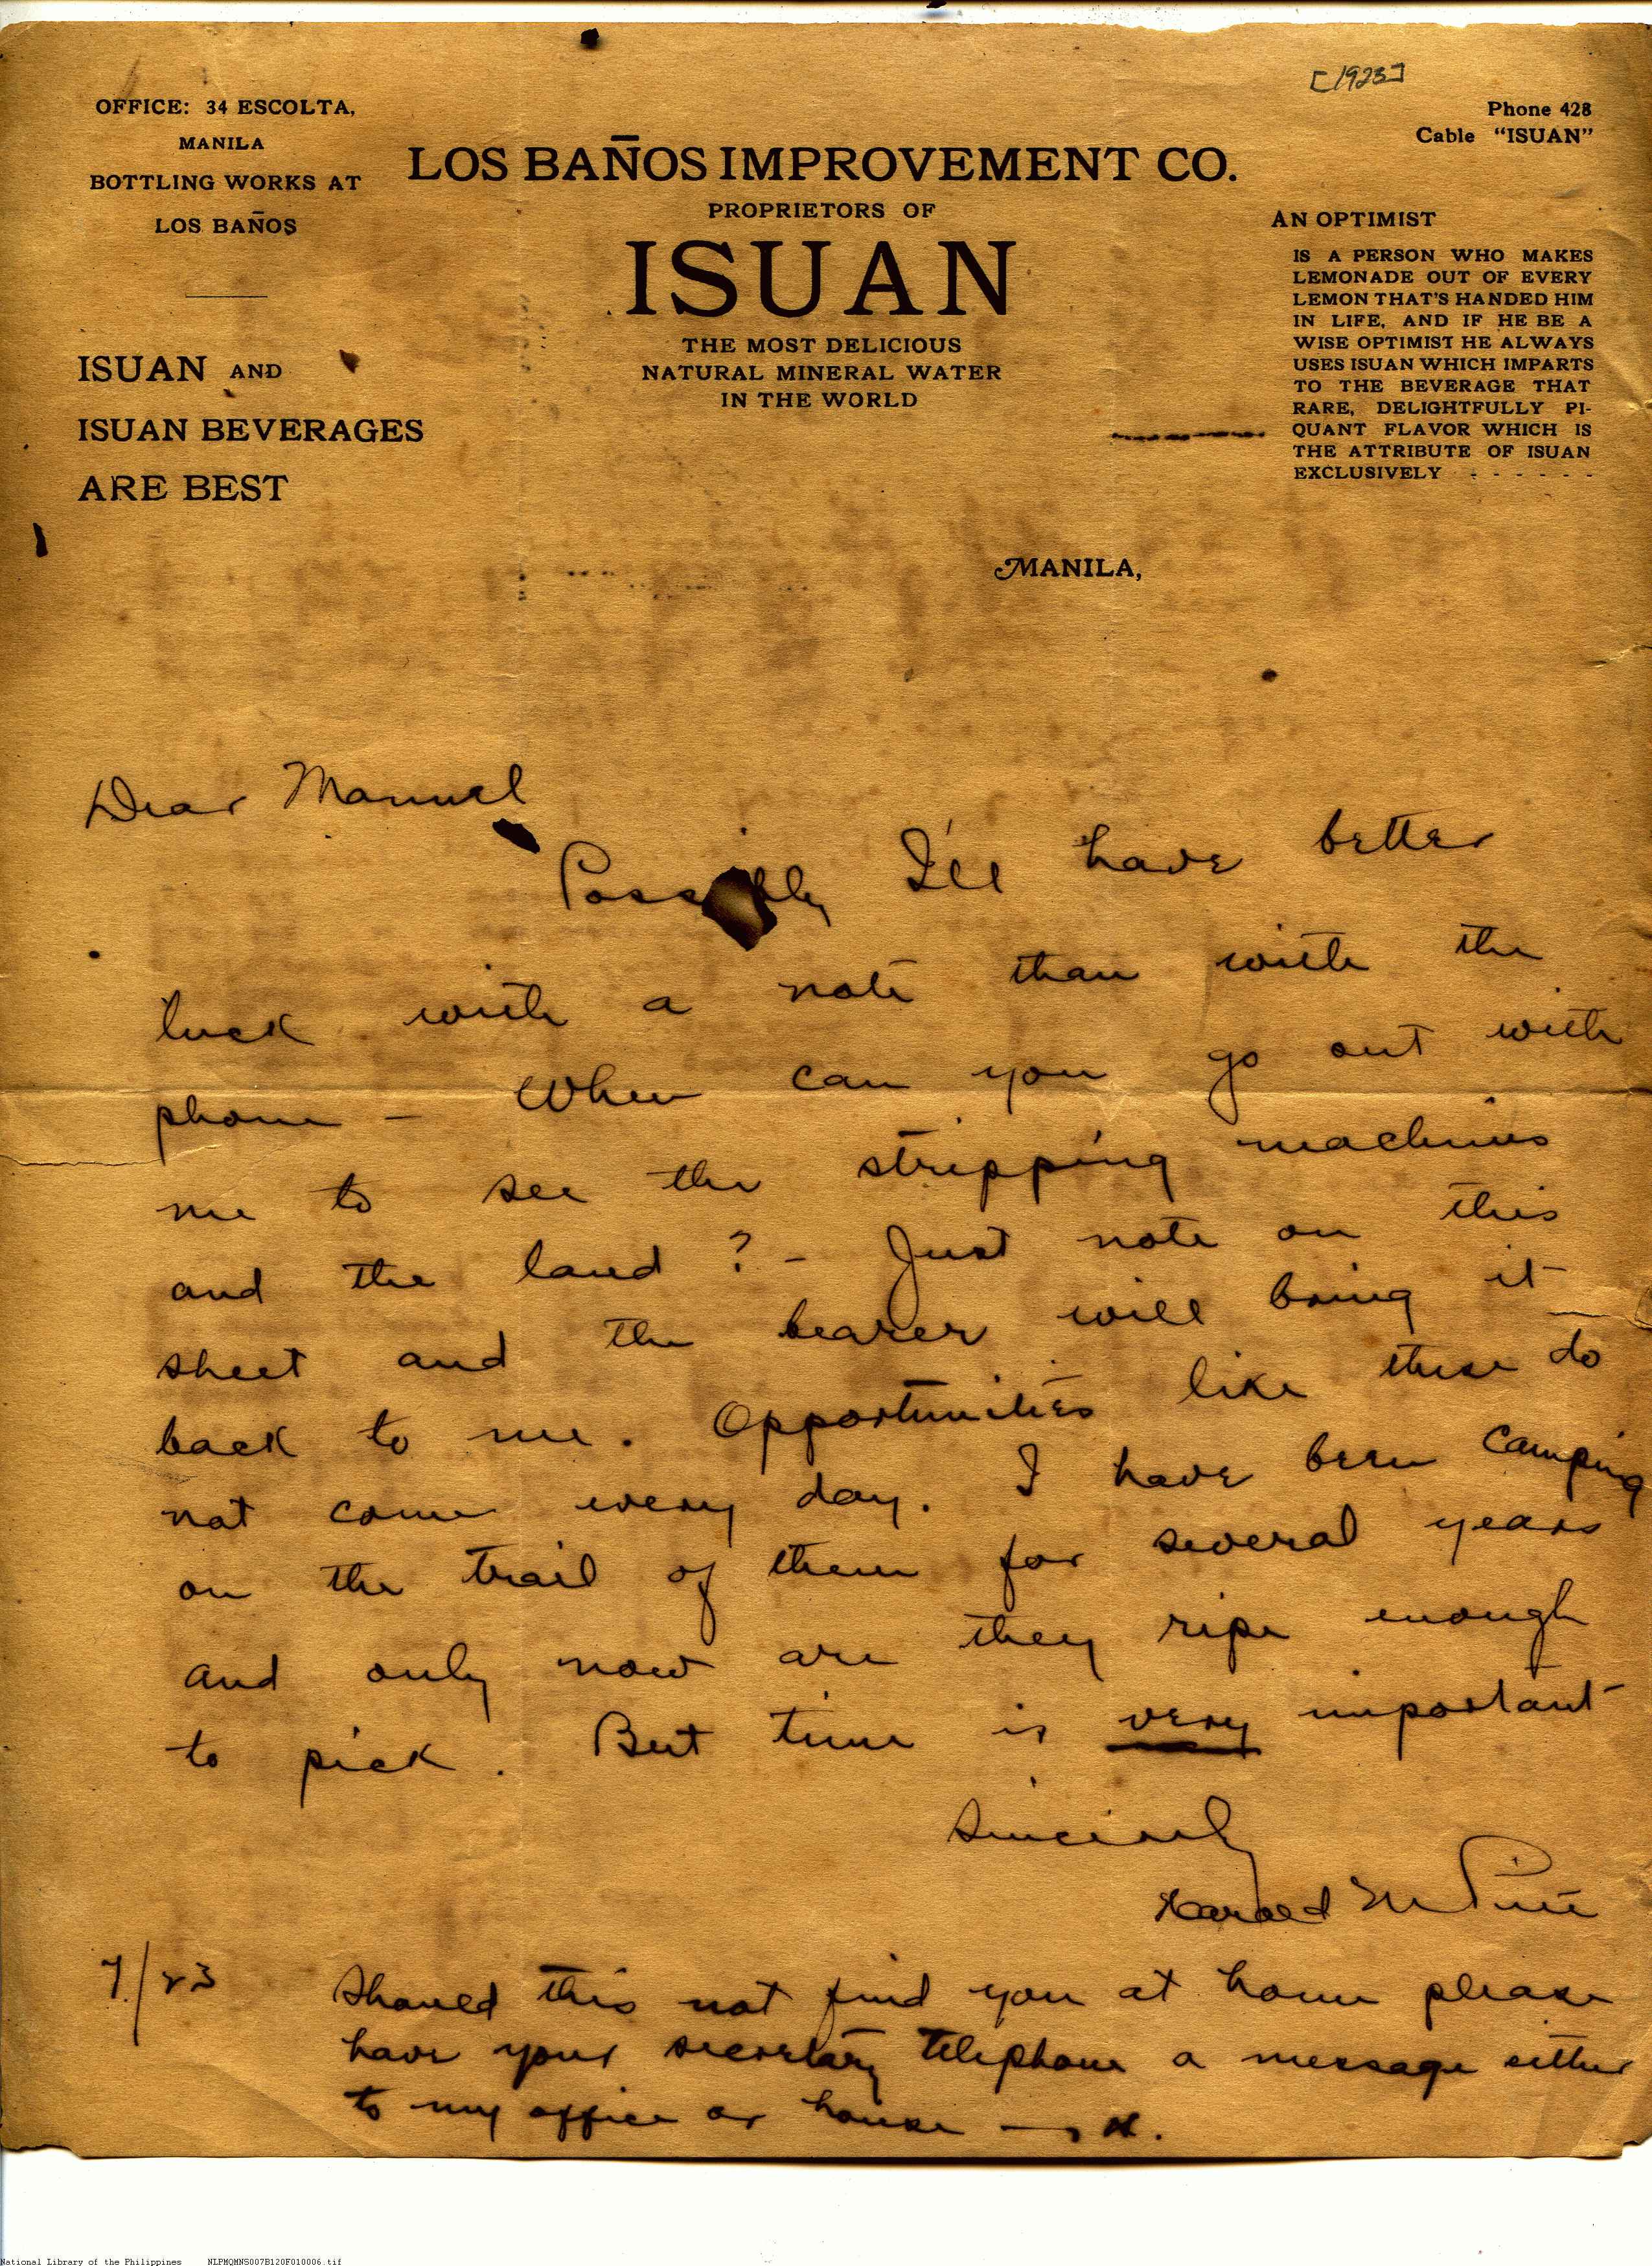 [1923]
OFFICE: 34 ESCOLTA,
MANILA
BOTTLING WORKS AT
LOS BAÑOS
ISUAN AND
ISUAN BEVERAGES
ARE BEST
LOS BAÑOS IMPROVEMENT CO.
PROPRIETORS OF
ISUAN
THE MOST DELICIOUS
NATURAL MINERAL WATER
IN THE WORLD
Phone 428
Cable "ISUAN"
AN OPTIMIST
IS A PERSON WHO MAKES
LEMONADE OUT OF EVERY
LEMON THAT'S HANDED HIM
IN LIFE, AND IF HE BE A
WISE OPTIMIST HE ALWAYS
USES ISUAN WHICH IMPARTS
TO THE BEVERAGE THAT
RARE, DELIGHTFULLY PI-
QUANT FLAVOR WHICH IS
THE ATTRIBUTE OF ISUAN
EXCLUSIVELY - - - - - -
MANILA,
Dear Manuel
Possibly I'll have better
luck with a note than with the
phone – When can you go out with
me to see the stripping machines
and the land? – Just note on this
sheet and the bearer will bring it
back to me. Opportunities like these do
not come every day. I have been camping
on the trail of them for several years
and only now are they ripe enough
to pick. But time is very important
Sincerely
Harold M
7/23
Should this not find you at home please
have your secretary telephone a message either
to my office or house — H.
National Library of the Philippines NLPMQMNS007B120F010006.tif